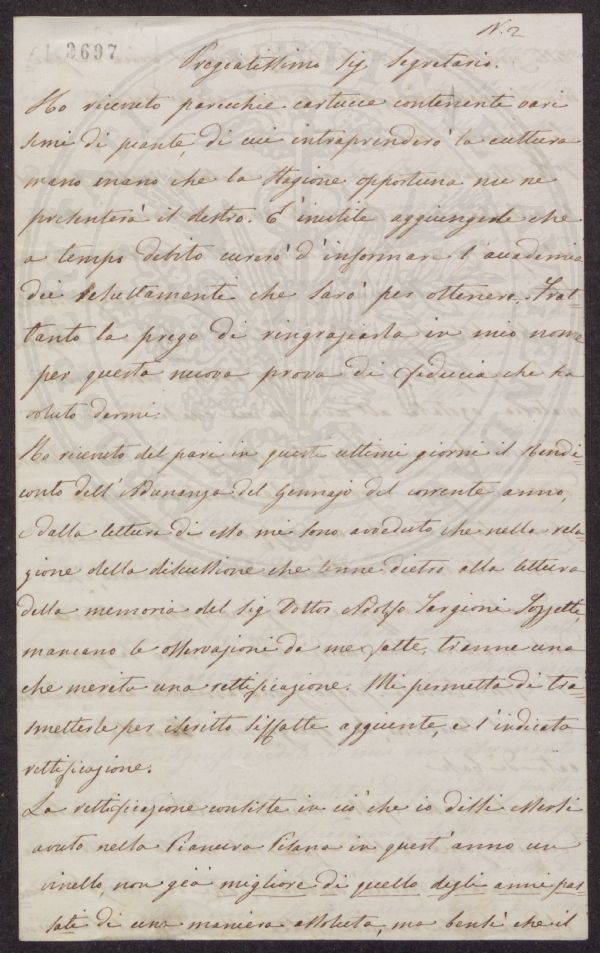 N. 2
2697
Pregiatissimo Sig Segretario.
Ho ricevuto parecchie cartucce contenente vari
semi di piante, di cui intraprenderò la cultura
mano mano che la stagione opportuna me ne
presenterà il destro. E' inutile aggiungerle che
a tempo debito curerò d'informare l'accademia
dei resultamenti che sarò per ottenere. Frat=
tanto la prego di ringraziarla in mio nome
per questa nuova prova di fiducia che ha
voluto darmi.
Ho ricevuto del pari in questi ultimi giorni il Rendi=
conto dell'Adunanza del Gennajo del corrente anno,
e dalla lettura di esso mi sono avveduto che nella rela=
zione della discussione che tenne dietro alla lettura
della memoria del Sig Dottor Adolfo Targioni Tozzetti,
mancano le osservazioni da me fatte, tranne una
che merita una rettificazione. Mi permetta di tra=
smetterle per iscritto siffatte aggiunte, e l'indicata
rettificazione.
La rettificazione consiste in ciò che io dissi essersi
avuto nella Pianura Pisana in quest'anno un
vinello, non già migliore di quello degli anni pas=
sati di una maniera assoluta, ma bensì che il